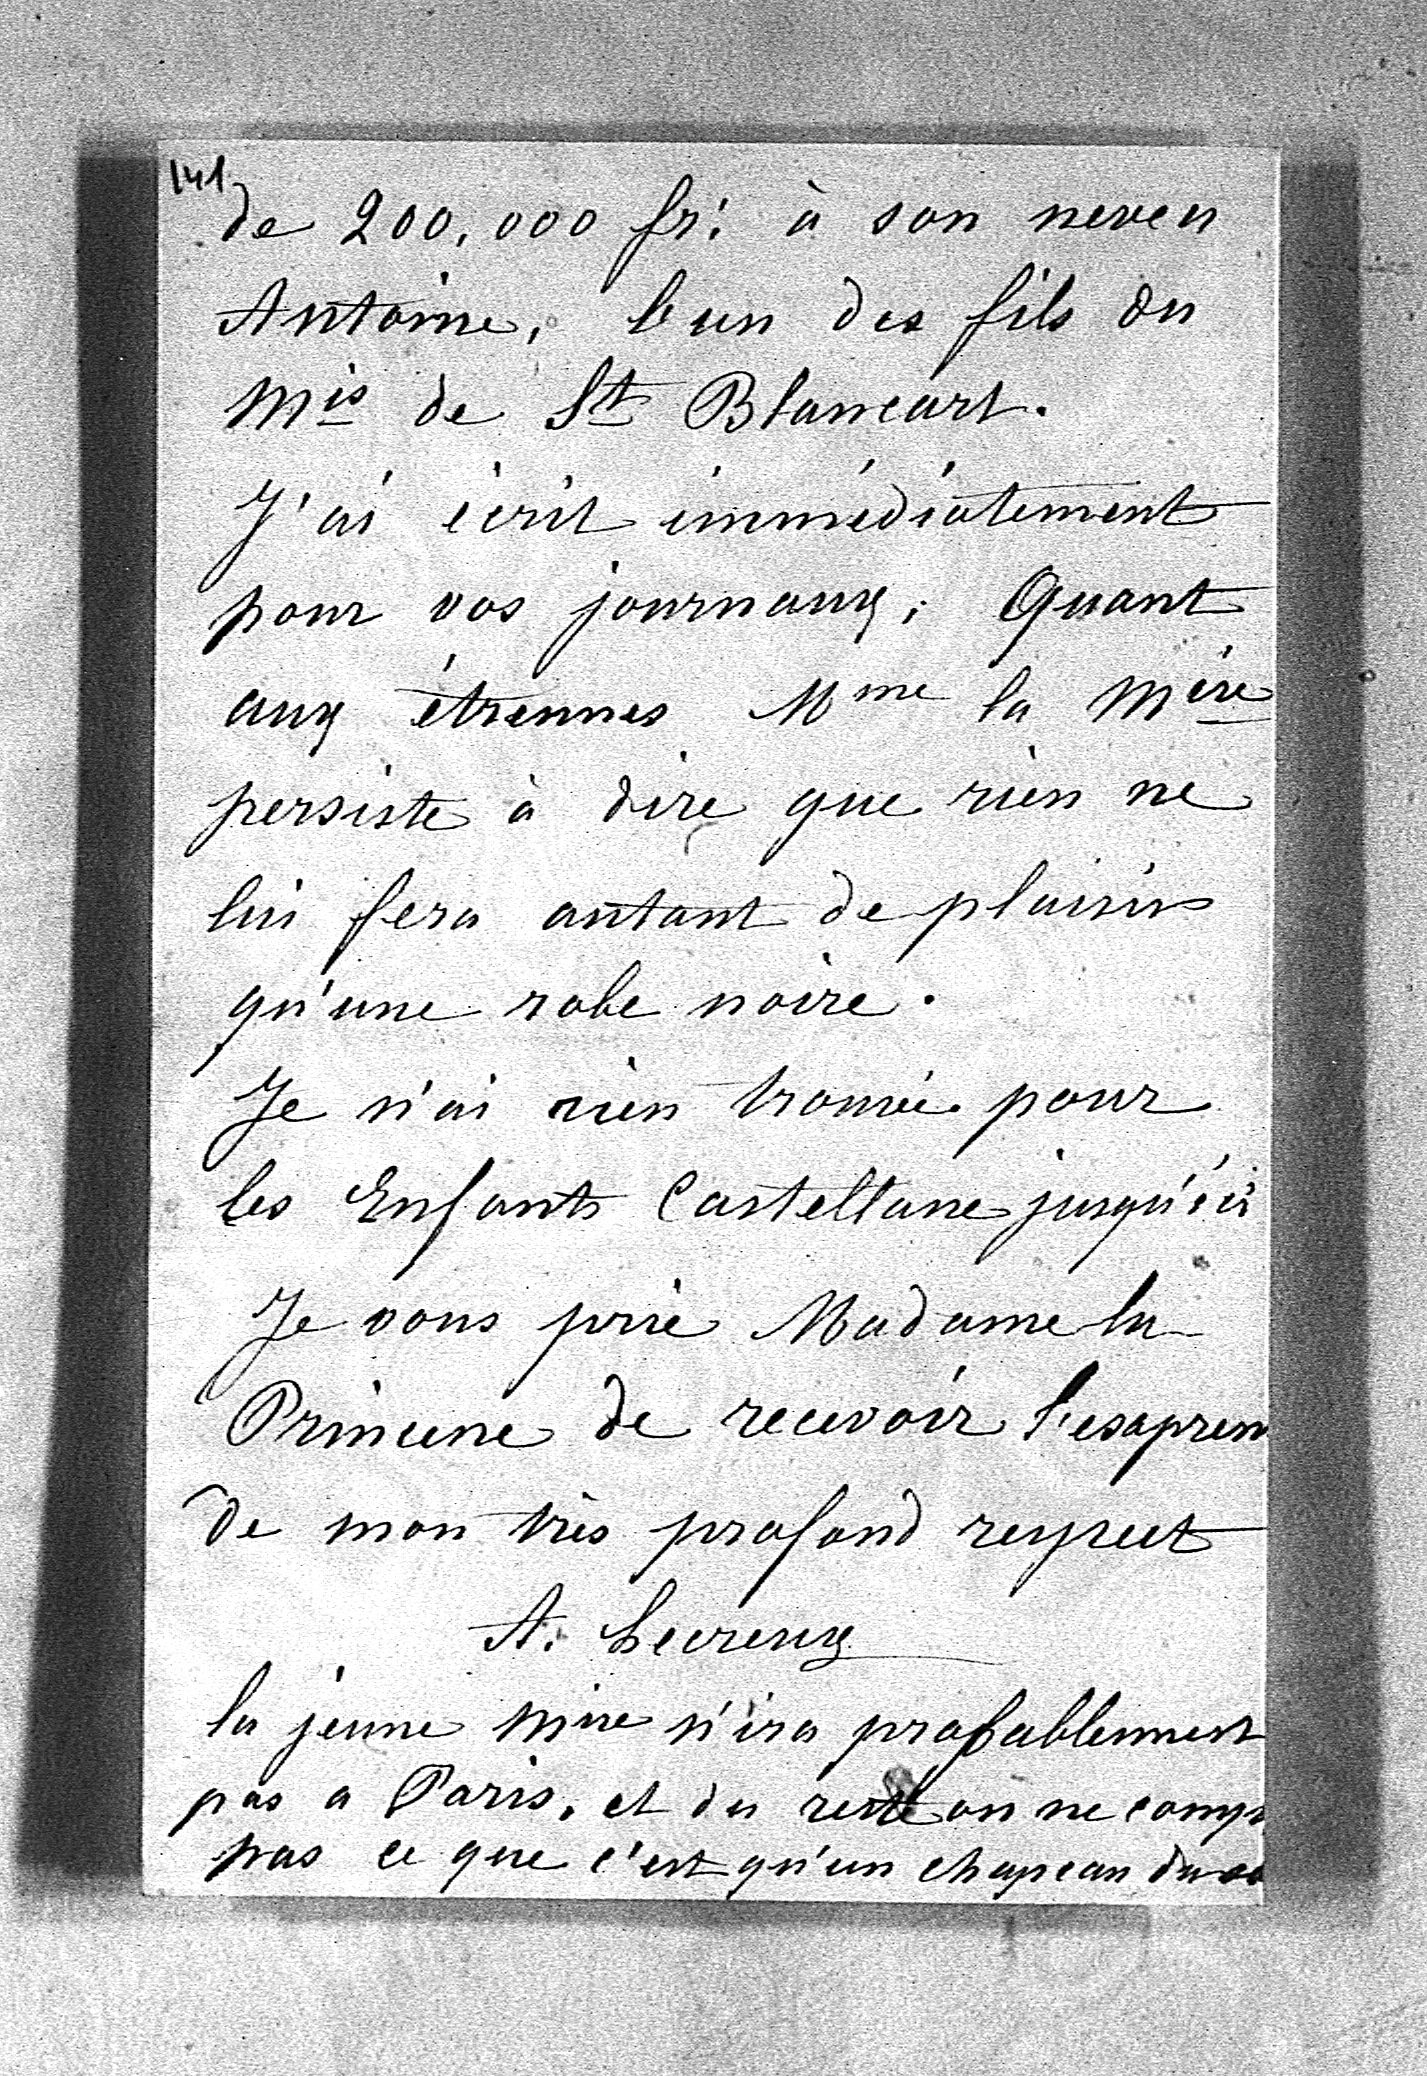 141
de 200,000 fr: à son neveu
Antoine, l'un des fils du
Mis de St Blancart.
J'ai écrit immédiatement
pour vos journaux; Quant
aux étrennes Mme la Mère
persiste à dire que rien ne
lui fera autant de plaisir
qu'une robe noire.
Je n'ai rien trouvé pour
les Enfants Castellane jusqu'ici
Je vous prie Madame la
Princesse de recevoir
de mon très profond respect
A. Lecreux
la jeune n'ira probablement
pas a Paris. et du reste on ne comp
pas ce que c'est qu'un chapeau du